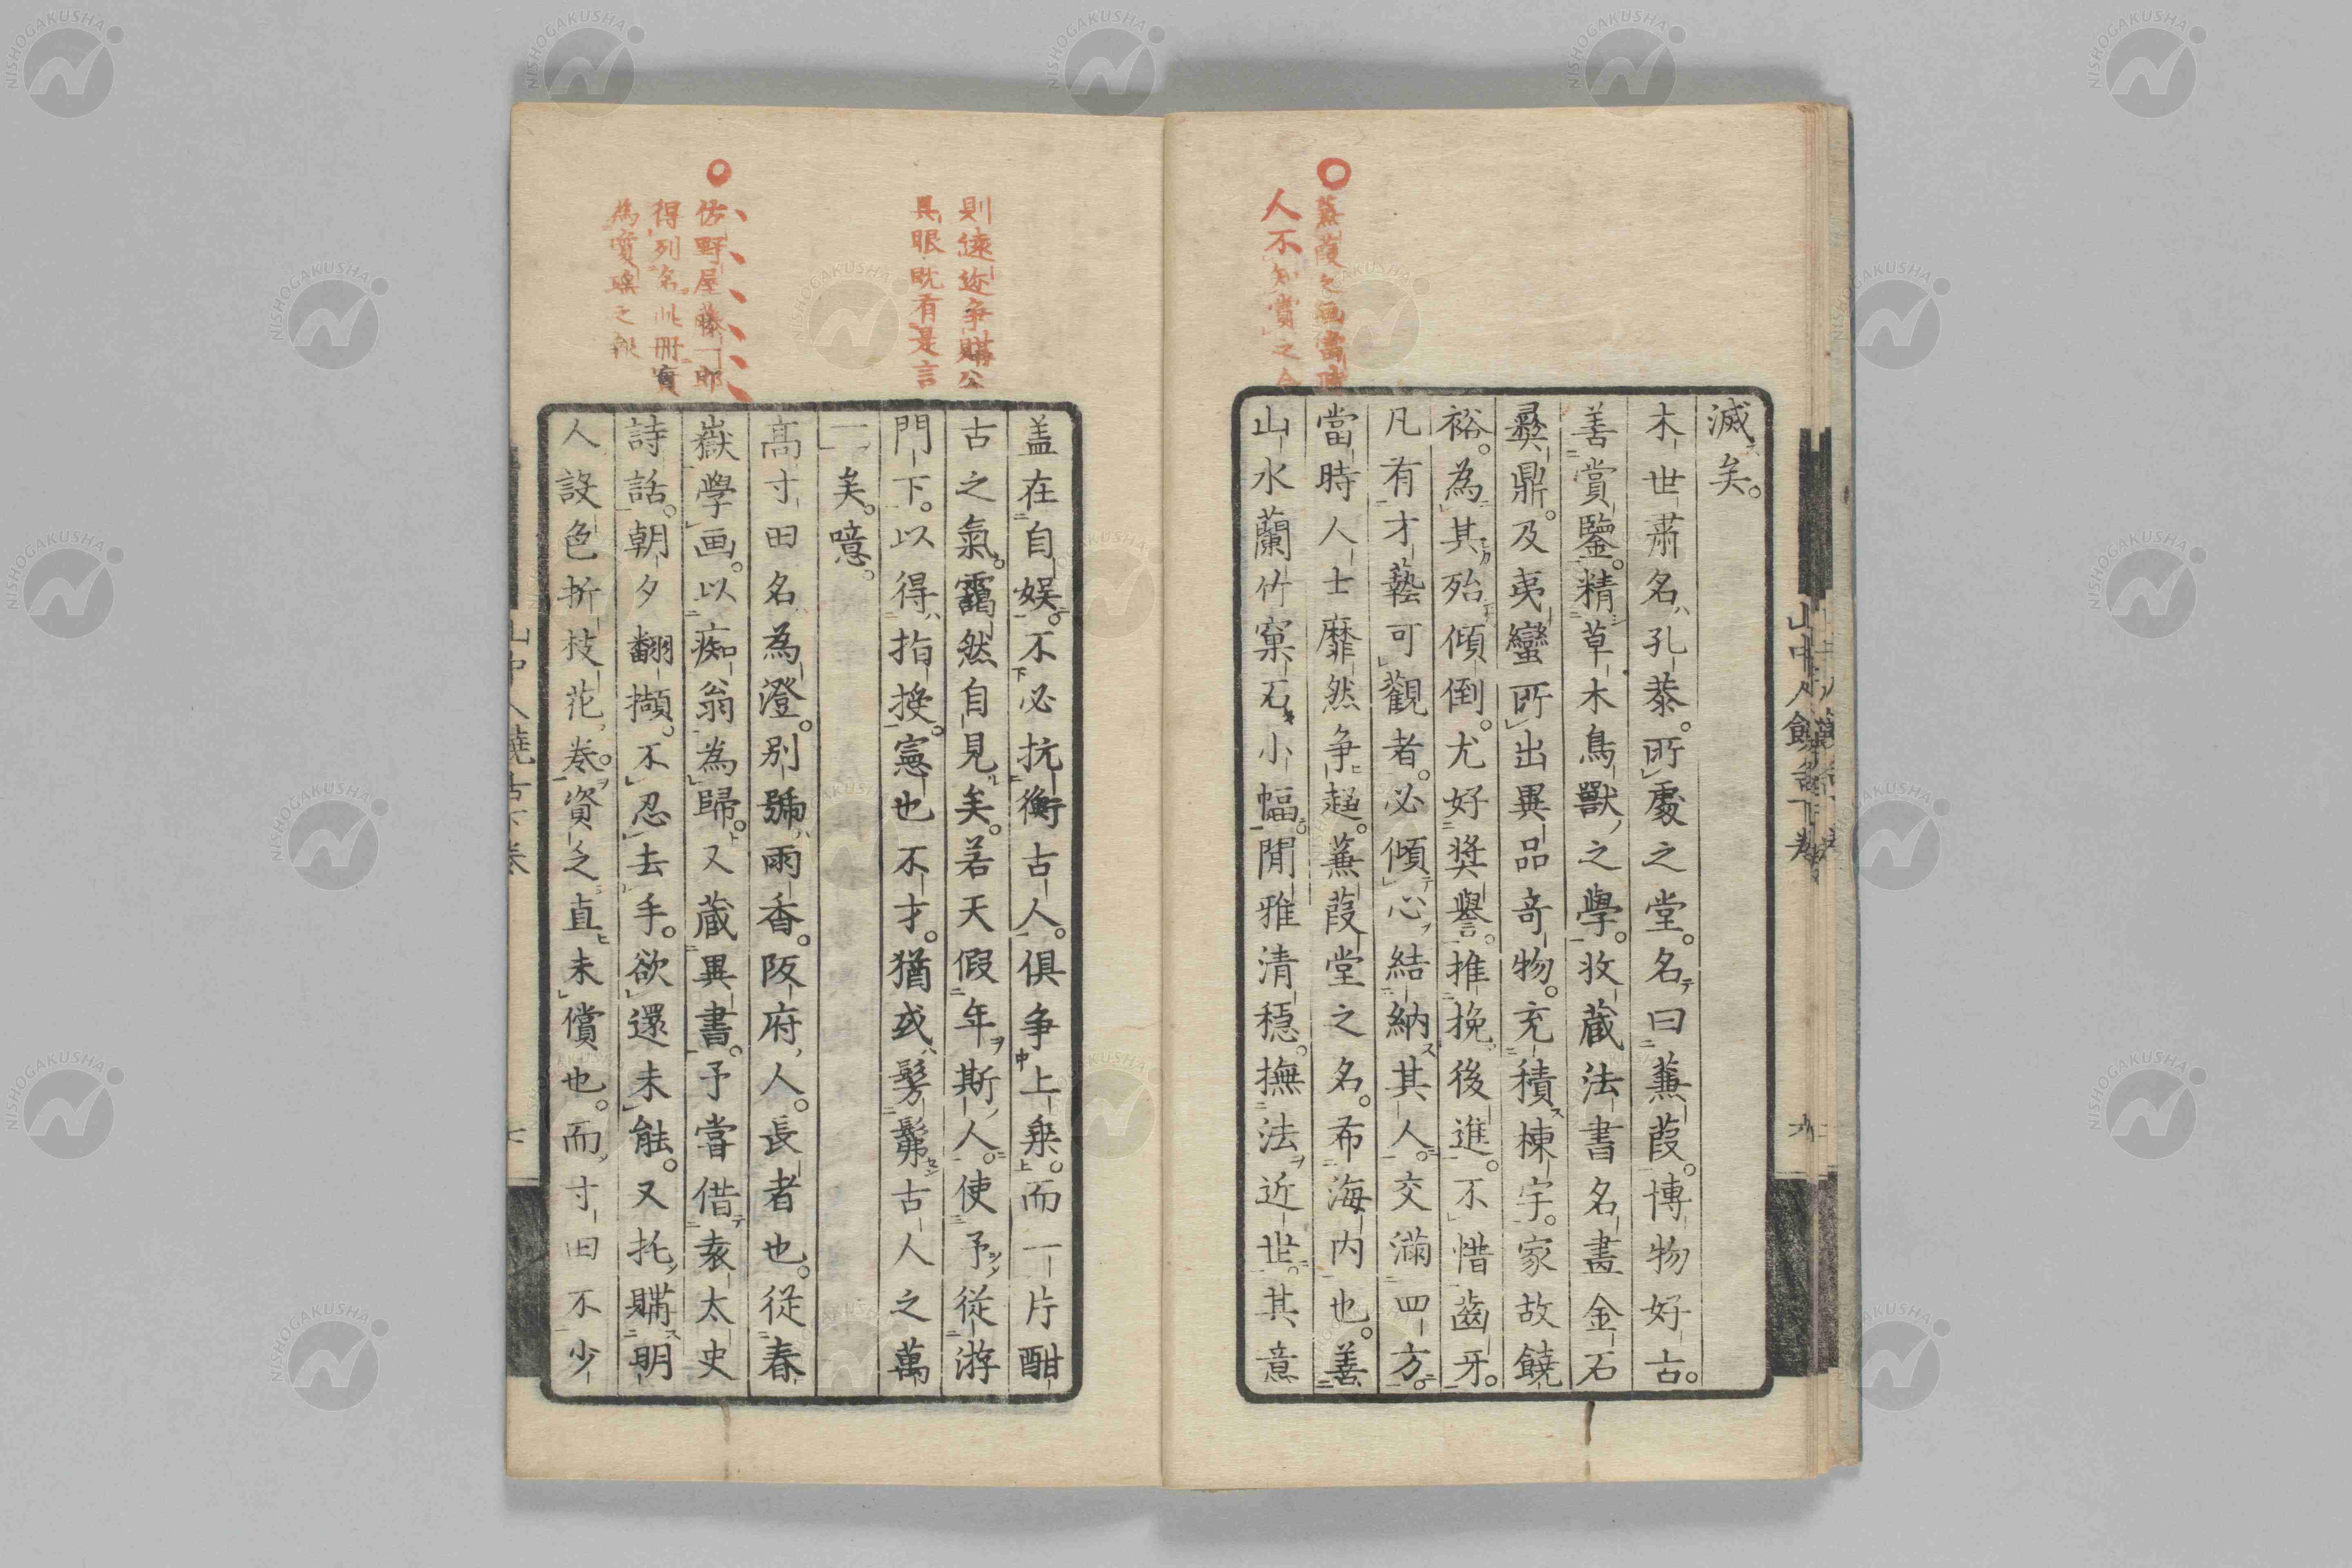 蒹葭之画當時
人不知賞之今
滅矣。
木世肅名孔恭。所處之堂。名曰蒹葭。博物好古。
善賞鑒。精草木鳥獸之學。收藏法書名畫金石
彝鼎。及夷蠻所出異品奇物。充積棟宇。家故饒
裕。為其殆傾倒。尤好奨譽。推挽後進。不惜齒牙。
凡有才藝可觀者。必傾心結納其人。交滿四方。
當時人士靡然争趨。蒹葭堂之名。布海内也。善
山水蘭竹窠石小幅。閒雅清穏。撫法近世。其意
則遠近争購公
具眼既有是言
佐野屋藤一郎
得列名此冊實
為實
之報
盖在自娯。不必抗衡古人。俱争上乗。而一片酣
古之氣。靄然自見矣。若天假年斯人。使予從游
門下。以得指授。憲也不才。猶或髣髴古人之萬
一矣。噫。
髙寸田名為澄。别號雨香。阪府人。長者也。從春
嶽學画。以痴翁為歸。又藏異書。予嘗借袁太史
詩話。朝夕翻擷。不忍去手。欲還未能。又托購明
人設色折枝花卷。資乏直未償也。而寸田不少
山中人饒舌下卷